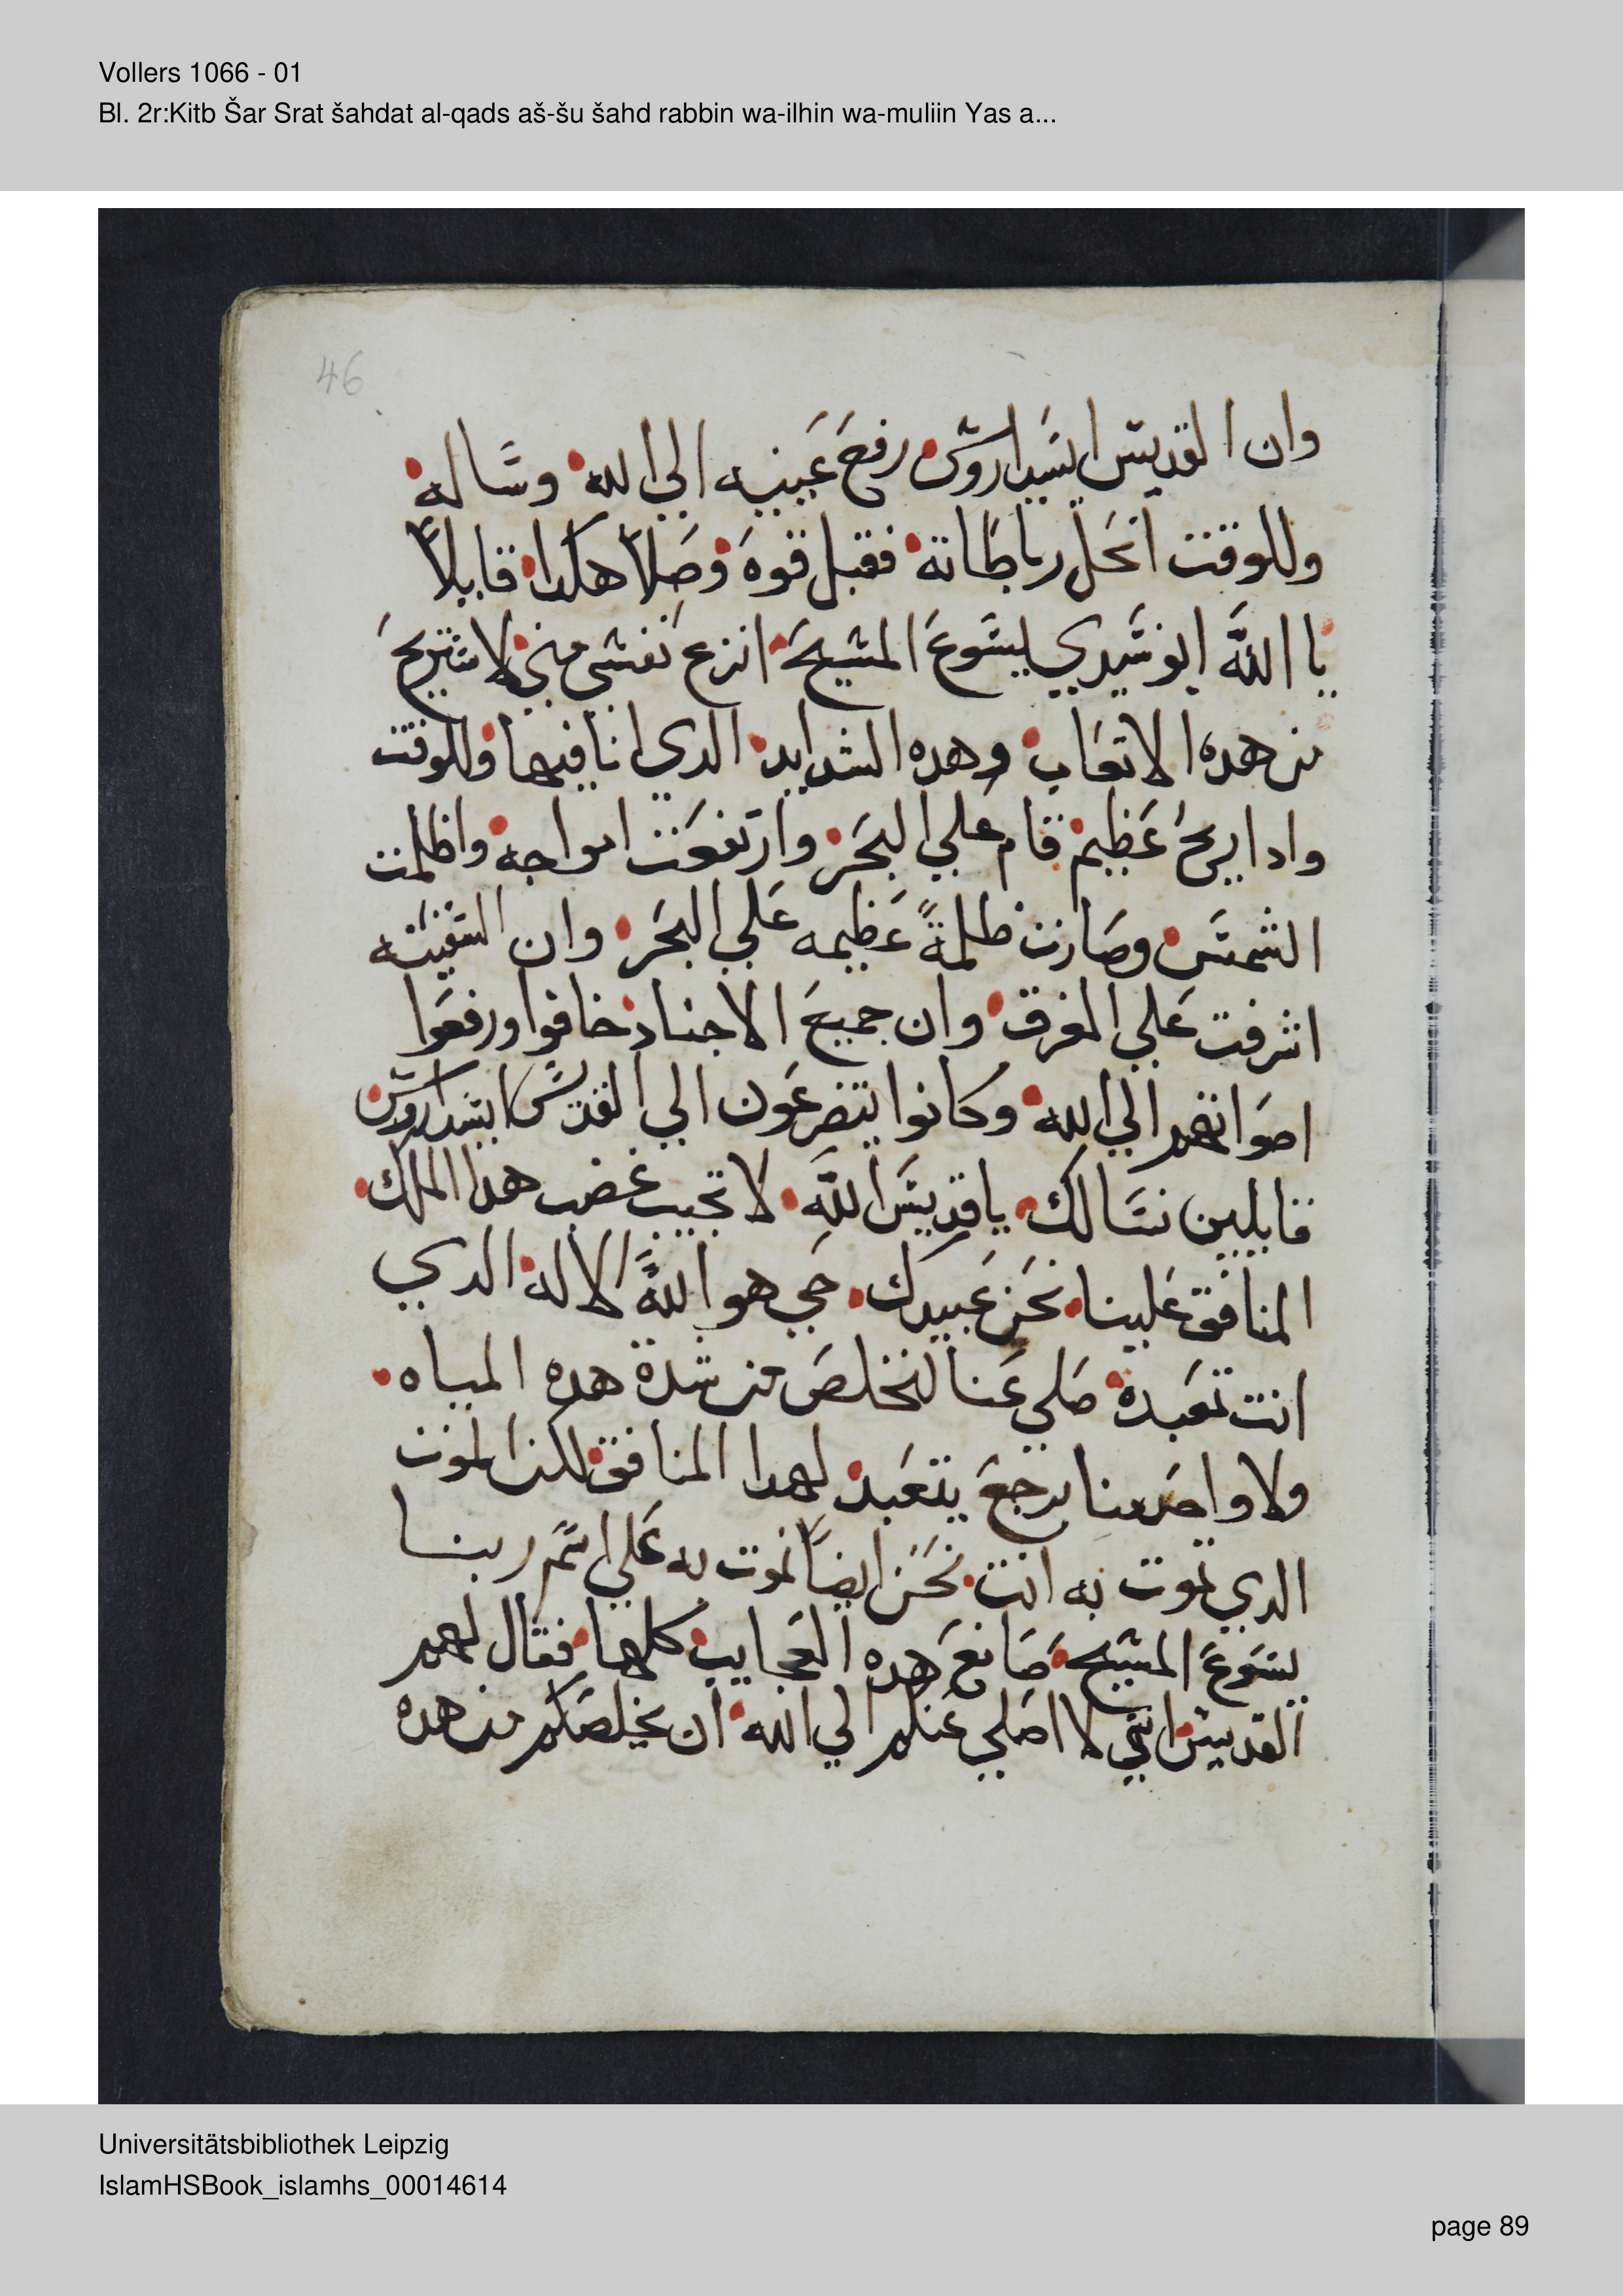 Vollers 1066 - 01
Bl. 2r:Kitb Šar Srat šahdat al-qads aš-šu šahd rabbin wa-ilhin wa-muliin Yas a...
46
وان القديس ايسيداروس رفع عينيه الي الله وساله
وللوقت انحل رباطاته فقبل قوه وصلا هكدا قايلاً
يا الله ابو سيدي يسوع المسيح انزع نفسي مني لاستريح
من هده الاتعاب وهده الشدايد الدي انا فيها وللوقت
وادا ريح عظيم قام علي البحر وارتفعت امواجه واظلمت
الشمس وصارت ظلمةً عظيمه علي البحر وان السفينه
اشرفت علي الغرق وان جميع الاجناد خافوا ورفعوا
اصواتهم الي الله وكانوا يتضرعون الي القديس ايسيداروس
قايلين نسالك يا قديس الله لا تجيب غضب هدا الملك
المنافق علينا نحن عبيدك حي هو الله الاله الدي
انت تعبده صلي عنا لنخلص من شدة هده المياه
ولا واحد منا يرجع يتعبد لهدا المنافق لكن الموت
الدي تموت به انت نحن ايضاً نموت به علي اسم ربنا
يسوع المسيح صانع هده العجايب كلها فقال لهم
القديس انني لا اصلي عنكم الي الله ان يخلصكم من هده
Universitätsbibliothek Leipzig
IslamHSBook_islamhs_00014614
page 89